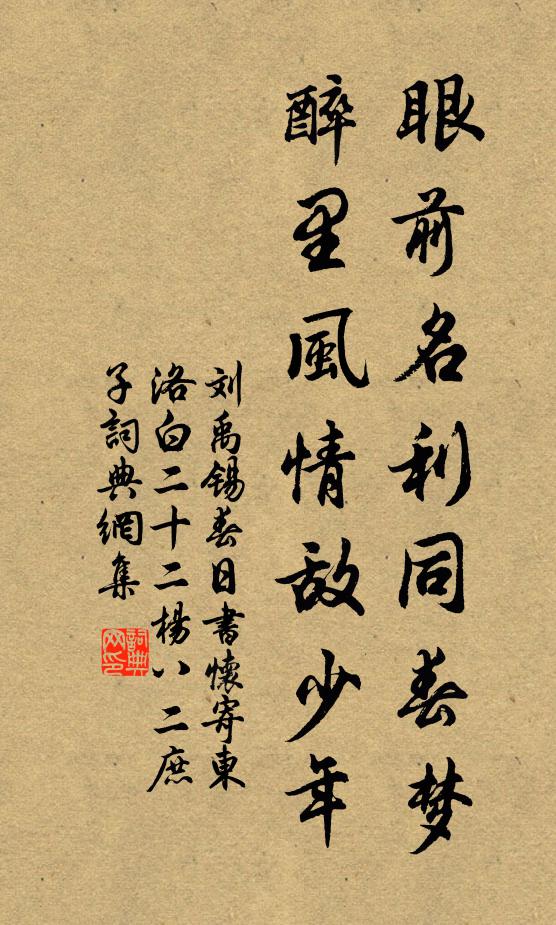 眼前名利同春梦
醉里風情敌少年
刘禹锡春日書懷寄東
洛白二十二楊八二庶
子詞典網集
詞典
网印